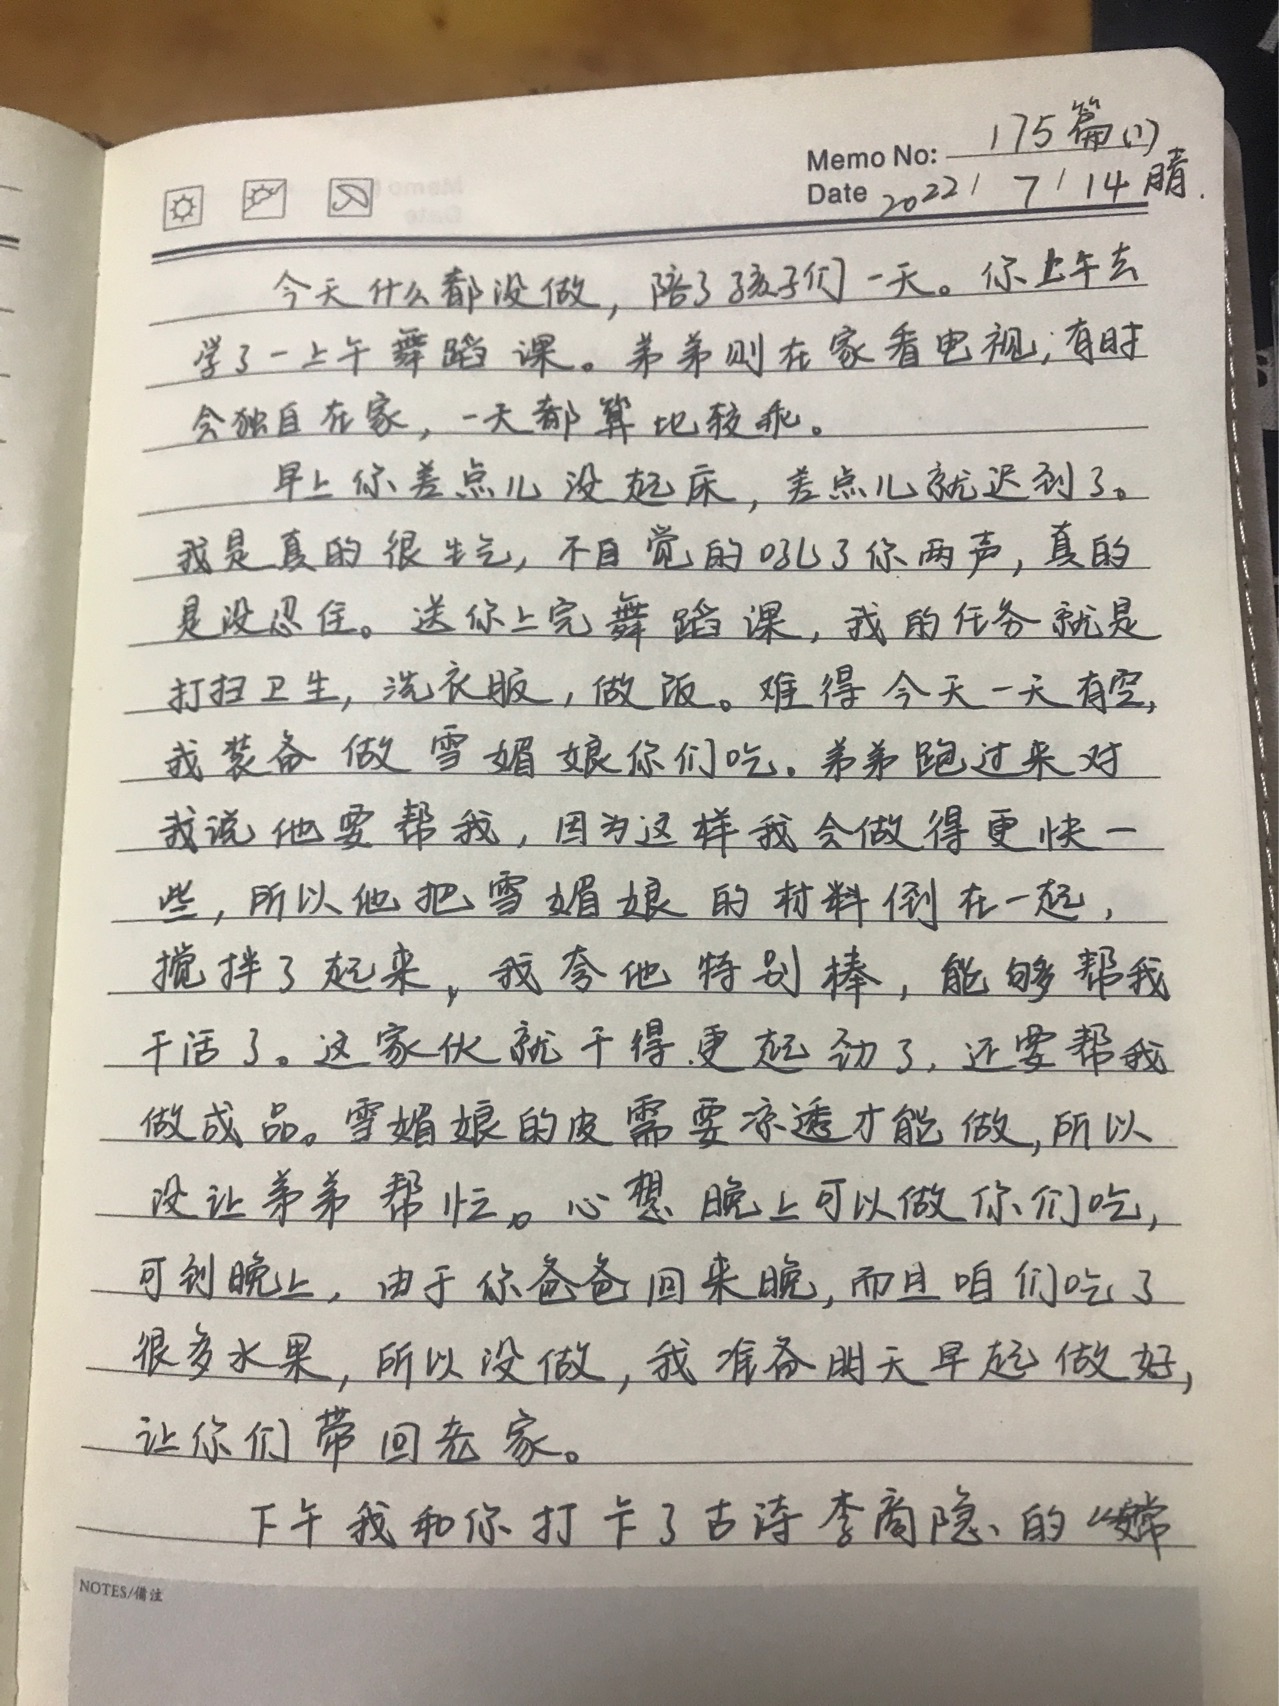 Memo No: 175篇(1)
Date 2022/7/14 晴.
今天什么都没做，陪了孩子们一天。你上午去
学了一上午舞蹈课。弟弟则在家看电视，有时
会独自在家，一天都算比较乖。
早上你差点儿没起床，差点儿就迟到了。
我是真的很生气，不自觉的吼了你两声，真的
是没忍住。送你上完舞蹈课，我的任务就是
打扫卫生，洗衣服，做饭。难得今天一天有空，
我装备做雪媚娘你们吃。弟弟跑过来对
我说他要帮我，因为这样我会做得更快一
些，所以他把雪媚娘的材料倒在一起，
搅拌了起来，我夸他特别棒，能够帮我
干活了。这家伙就干得更起劲了，还要帮我
做成品。雪媚娘的皮需要凉透才能做，所以
没让弟弟帮忙。心想晚上可以做你们吃，
可到晚上，由于你爸爸回来晚，而且咱们吃了
很多水果，所以没做，我准备明天早起做好，
让你们带回老家。
下午我和你打卡了古诗李商隐、的《嫦
NOTES/備注